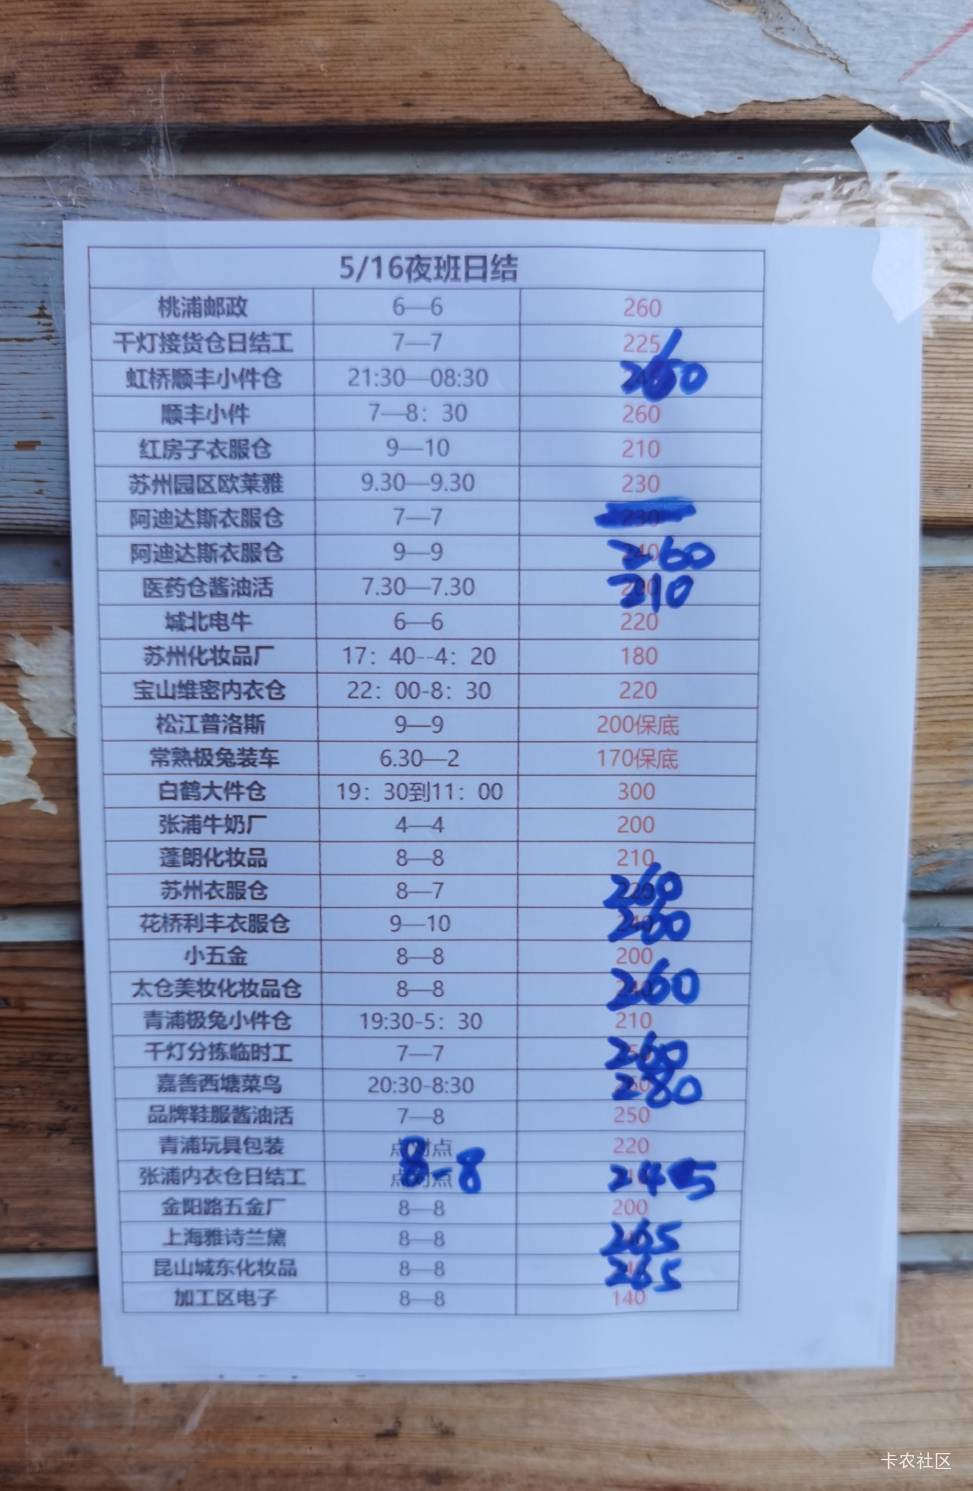 5/16夜班日结
桃浦邮政 6—6 260
千灯接货仓日结工 7—7 225
虹桥顺丰小件仓 21:30—08:30 260
顺丰小件 7—8：30 260
红房子衣服仓 9—10 210
苏州园区欧莱雅 9.30—9.30 230
阿迪达斯衣服仓 7—7 230
阿迪达斯衣服仓 9—9 260
医药仓酱油活 7.30—7.30 210
城北电牛 6—6 220
苏州化妆品厂 17：40--4：20 180
宝山维密内衣仓 22：00-8：30 220
松江普洛斯 9—9 200保底
常熟极兔装车 6.30—2 170保底
白鹤大件仓 19：30到11：00 300
张浦牛奶厂 4—4 200
蓬朗化妆品 8—8 210
苏州衣服仓 8—7 260
花桥利丰衣服仓 9—10 260
小五金 8—8 200
太仓美妆化妆品仓 8—8 260
青浦极兔小件仓 19:30-5：30 210
千灯分拣临时工 7—7 260
嘉善西塘菜鸟 20:30-8:30 280
品牌鞋服酱油活 7—8 250
青浦玩具包装 点对点 220
张浦内衣仓日结工 8-8 245
金阳路五金厂 8—8 200
上海雅诗兰黛 8—8 265
昆山城东化妆品 8—8 265
加工区电子 8—8 140
卡农社区